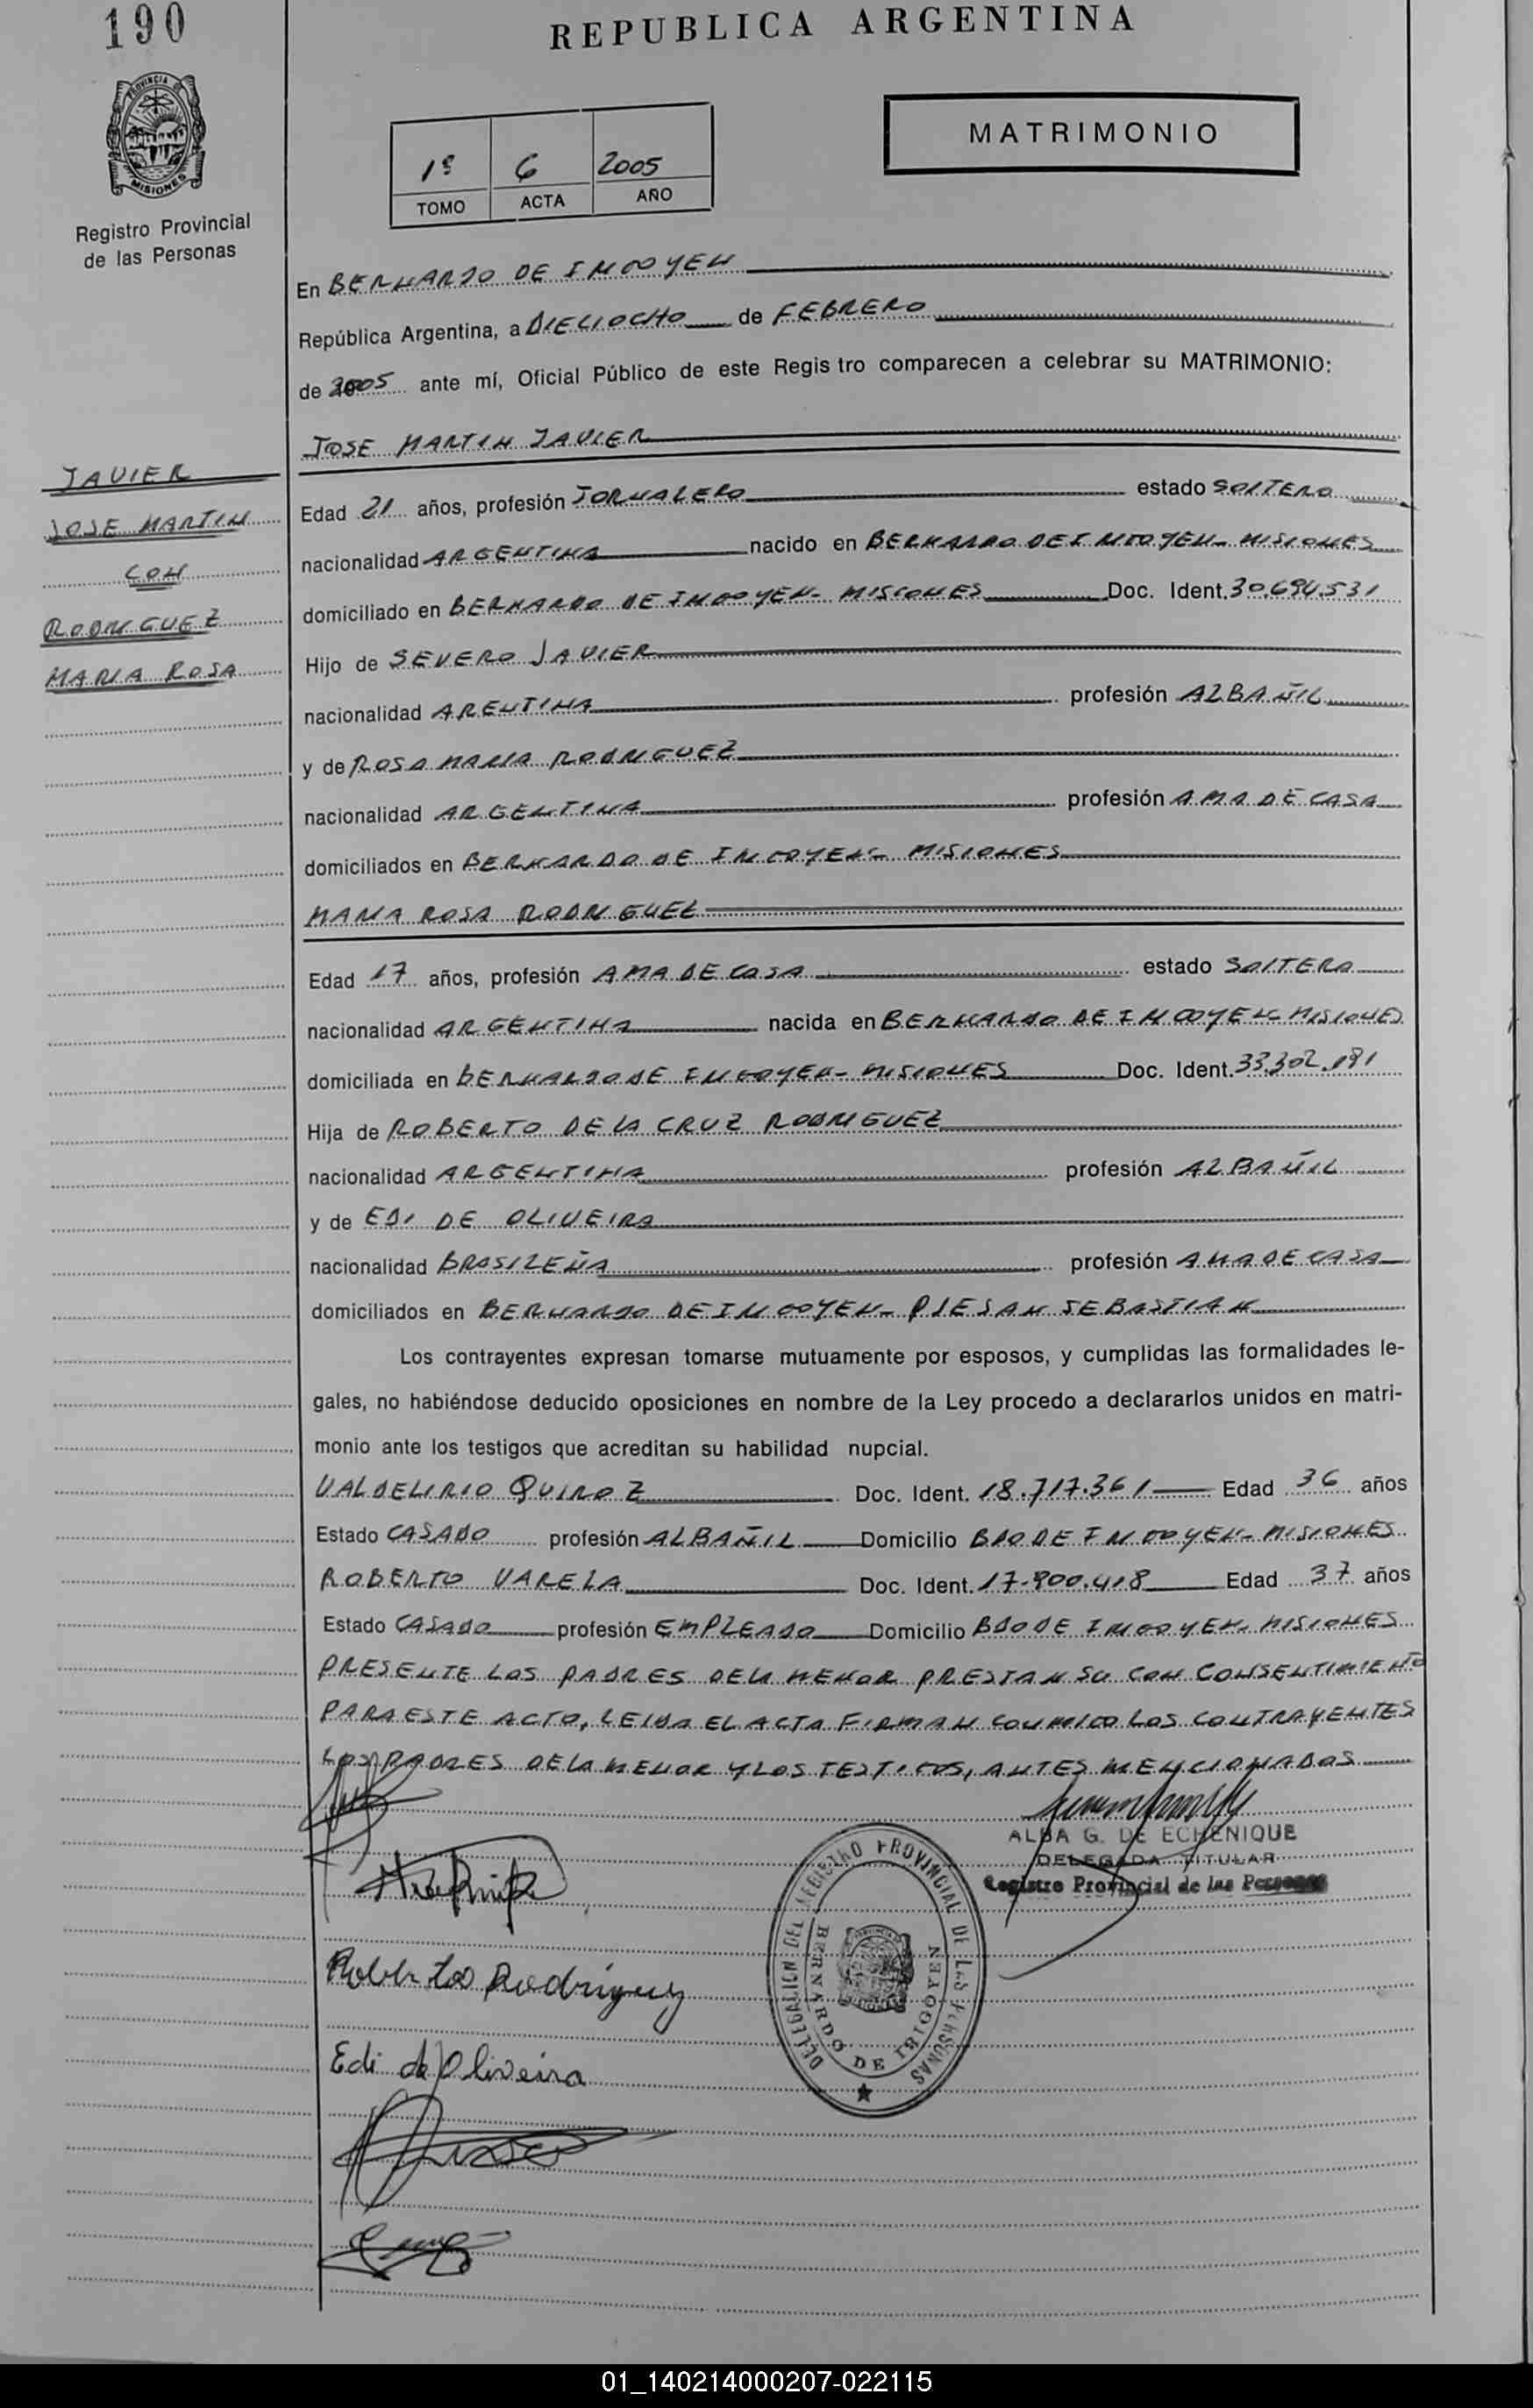 190
REPUBLICA ARGENTINA
PROVINCIA DE
MISIONES
Registro Provincial
de las Personas
MATRIMONIO
1º 6 2005
TOMO ACTA AÑO
En BERNARDO DE IRIGOYEN
República Argentina, a DIECIOCHO de FEBRERO
de 2005 ante mí, Oficial Público de este Regis tro comparecen a celebrar su MATRIMONIO:
JOSE MARTIN JAVIER
JAVIER
JOSE MARTIN
CON
RODRIGUEZ
MARIA ROSA
Edad 21 años, profesión JORNALERO estado SOLTERO
nacionalidad ARGENTINA nacido en BERNARDO DE IRIGOYEN- MISIONES
domiciliado en BERNARDO DE IRIGOYEN- MISIONES Doc. Ident. 30.694.531
Hijo de SEVERO JAVIER
nacionalidad ARENTINA profesión ALBAÑIL
y de ROSA MARIA RODRIGUEZ
nacionalidad ARGENTINA profesión AMA DE CASA
domiciliados en BERNARDO DE IRIGOYEN- MISIONES
MARIA ROSA RODRIGUEZ
Edad 17 años, profesión AMA DE CASA estado SOLTERA
nacionalidad ARGENTINA nacida en BERNARDO DE IRIGOYEN- MISIONES
domiciliada en BERNARDO DE IRIGOYEN- MISIONES Doc. Ident. 33.302.191
Hija de ROBERTO DE LA CRUZ RODRIGUEZ
nacionalidad ARGENTINA profesión ALBAÑIL
y de EDI DE OLIVEIRA
nacionalidad BRASILEÑA profesión AMA DE CASA
domiciliados en BERNARDO DE IRIGOYEN- PJE SAN SEBASTIAN
Los contrayentes expresan tomarse mutuamente por esposos, y cumplidas las formalidades le-
gales, no habiéndose deducido oposiciones en nombre de la Ley procedo a declararlos unidos en matri-
monio ante los testigos que acreditan su habilidad nupcial.
VALDELIRIO QUIROZ Doc. Ident. 18.717.361 Edad 36 años
Estado CASADO profesión ALBAÑIL Domicilio BDO DE IRIGOYEN- MISIONES
ROBERTO VARELA Doc. Ident. 17.900.418 Edad 37 años
Estado CASADO profesión EMPLEADO Domicilio BDO DE IRIGOYEN- MISIONES
PRESENTE LOS PADRES DE LA MENOR PRESTAN SU CON CONSENTIMIENTO
PARA ESTE ACTO, LEIDA EL ACTA FIRMAN CONMIGO LOS CONTRAYENTES
LOS PADRES DE LA MENOR Y LOS TESTIGOS, ANTES MENCIONADOS
ALBA G. DE ECHENIQUE
DELEGADA TITULAR
Registro Provincial de las Personas
DELEGACION DEL REGISTRO PROVINCIAL DE LAS PERSONAS
BERNARDO DE IRIGOYEN
Roberto Rodriguez
Edi de Oliveira
01_140214000207-022115